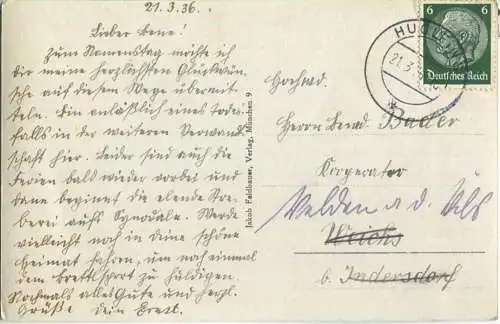 21.3.36.
Lieber Bene!
Zum Namenstag möchte ich
dir meine herzlichsten Glückwün-
sche auf diesem Wege übermit-
teln. Bin anläßlich eines Todes-
falls in der weiteren Verwand-
schaft hier. Leider sind auch die
Ferien bald wieder vorbei und
dann beginnt die elende Stre-
berei aufs Synodale. Werde
vielleicht noch in deine schöne
Heimat fahren, um noch einmal
dem Brettlsport zu huldigen.
Nochmals alles Gute und herzl.
Grüße dein
Jakob Feldbauer, Verlag, München 9
6 6
Deutsches Reich
21.3.
Hochw.
Herrn Bened. Bader
Kooperator
Velden a. d. Vils
Weichs
b. Indersdorf